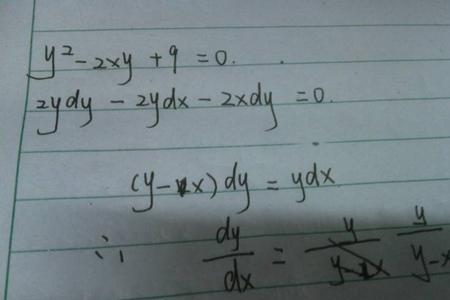 y² - 2xy + 9 = 0.
2ydy - 2ydx - 2xdy = 0.
(y - x) dy = ydx
∴ dy/dx = y/(y-x)